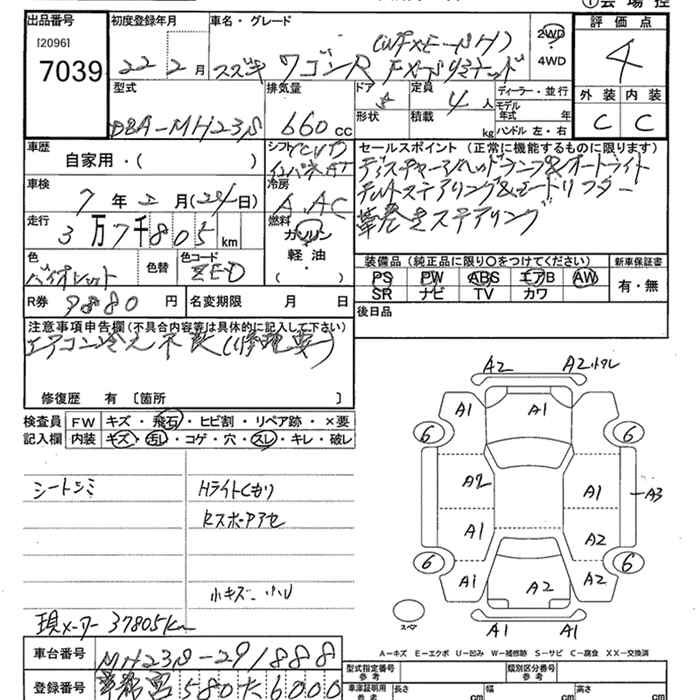 出品番号
[20961
7039
初度登録年月
22年 2月
車名・グレード
スズキ ワゴンR FXリミテッド
2WD
・
4WD
評価点
4
型式
DBA-MH23S
排気量
660cc
ドア
形状
定員
4人
積載
kg
ディーラー・並行
モデル年式 年
ハンドル 左・右
外装 内装
C C
車歴
自家用・( )
シフト
車検
7年 2月 (24日)
冷房
A.AC
走行
3万7千805km
燃料
ガソリン
軽油
・
( )
色
バイオレット
色替
色コード
ZED
R券
9880円
名変期限 月 日
セールスポイント (正常に機能するものに限ります)
ディスチャージヘッドランプ&オートライト
チルトステアリング&シートリフター
革巻きステアリング
装備品 (純正品に限り○をつけてください)
PS PW ABS エアB AW
SR ナビ TV カワ
新車保証書
有・無
後日品
注意事項申告欄(不具合内容等は具体的に記入して下さい)
エアコン冷え不良(修理要)
修復歴 有 〔箇所 〕
検査員記入欄
FW キズ・飛石・ヒビ割・リペア跡・×要
内装 キズ・汚レ・コゲ・穴・スレ・キレ・破レ
シートシミ
Hライトくもり
Rスポーアセ
小キズ
現メーター 37805km
車台番号
MH23S-291888
登録番号
宇都宮580 た6000
A2 A2
A1 A1 A1
6 6
A2 A1 A3
A1 A2
6 6
A1 A2 A2
スペア
A1 A1
A-キズ E-エクボ U-凹み W-補修跡 S-サビ C-腐食 XX-交換済
型式指定番号
参考
類別区分番号
参考
車庫証明用
参考
長さ cm 幅 cm 高さ cm